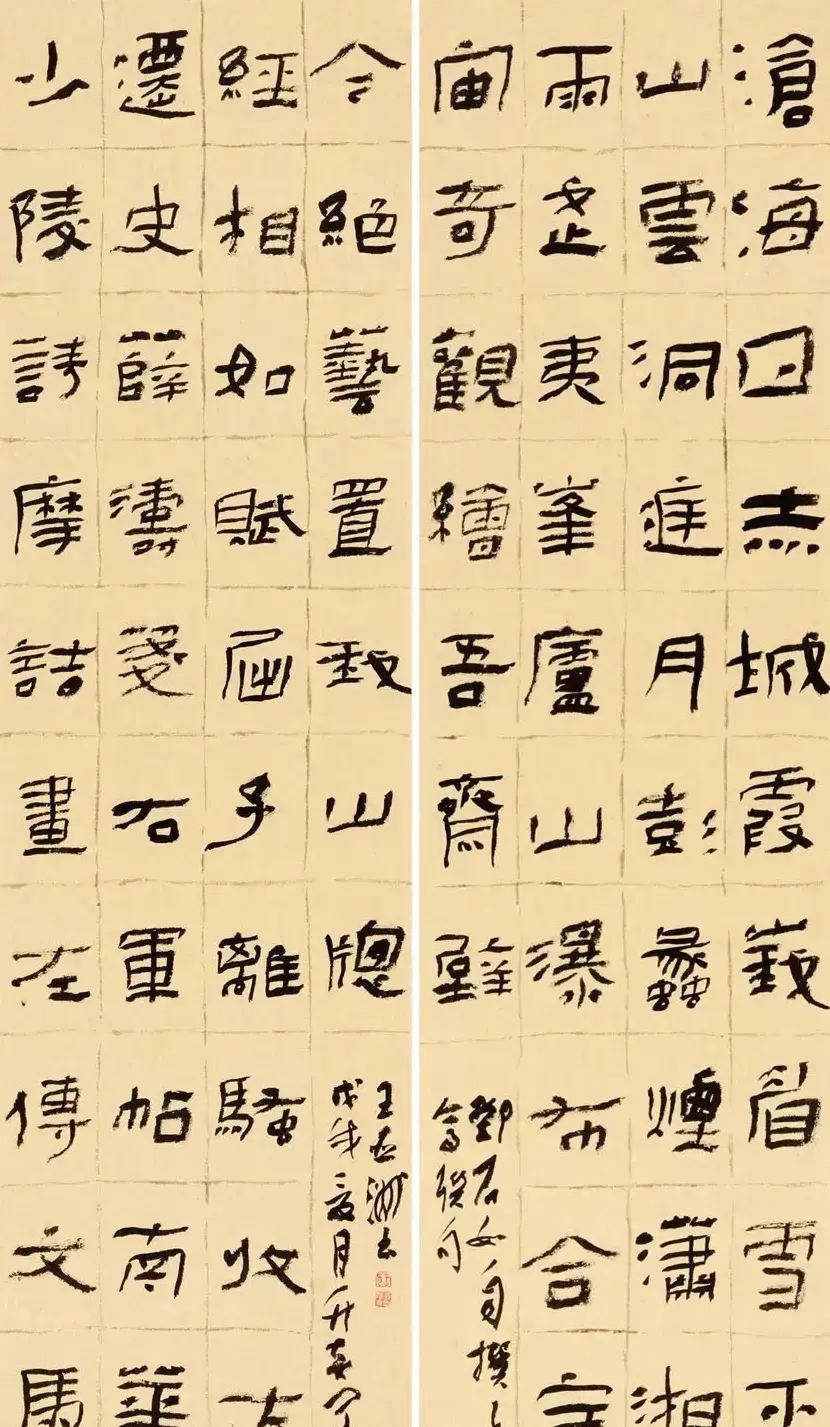 滄海日赤城霞峩眉雪巫
山雲洞庭月彭蠡煙瀟湘
雨武夷峯廬山瀑布合宇
宙奇觀繪吾齋壁
鄧石如自撰
聯句
少陵詩摩詰畫左傳文馬
遷史薛濤箋右軍帖南華
經相如賦屈子離騷收古
今絕藝置我山牕
戊戌夏月